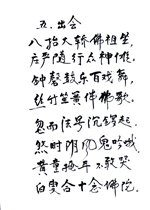 五. 出会
八抬大轿佛祖坐,
庄严随行众神推。
钟磬鼓乐百戏舞,
丝竹笙簧伴佛歌。
忽而法号沉锣起
然时阴风鬼吟戚
黄童 年 歌哭
白叟合十念佛陀。